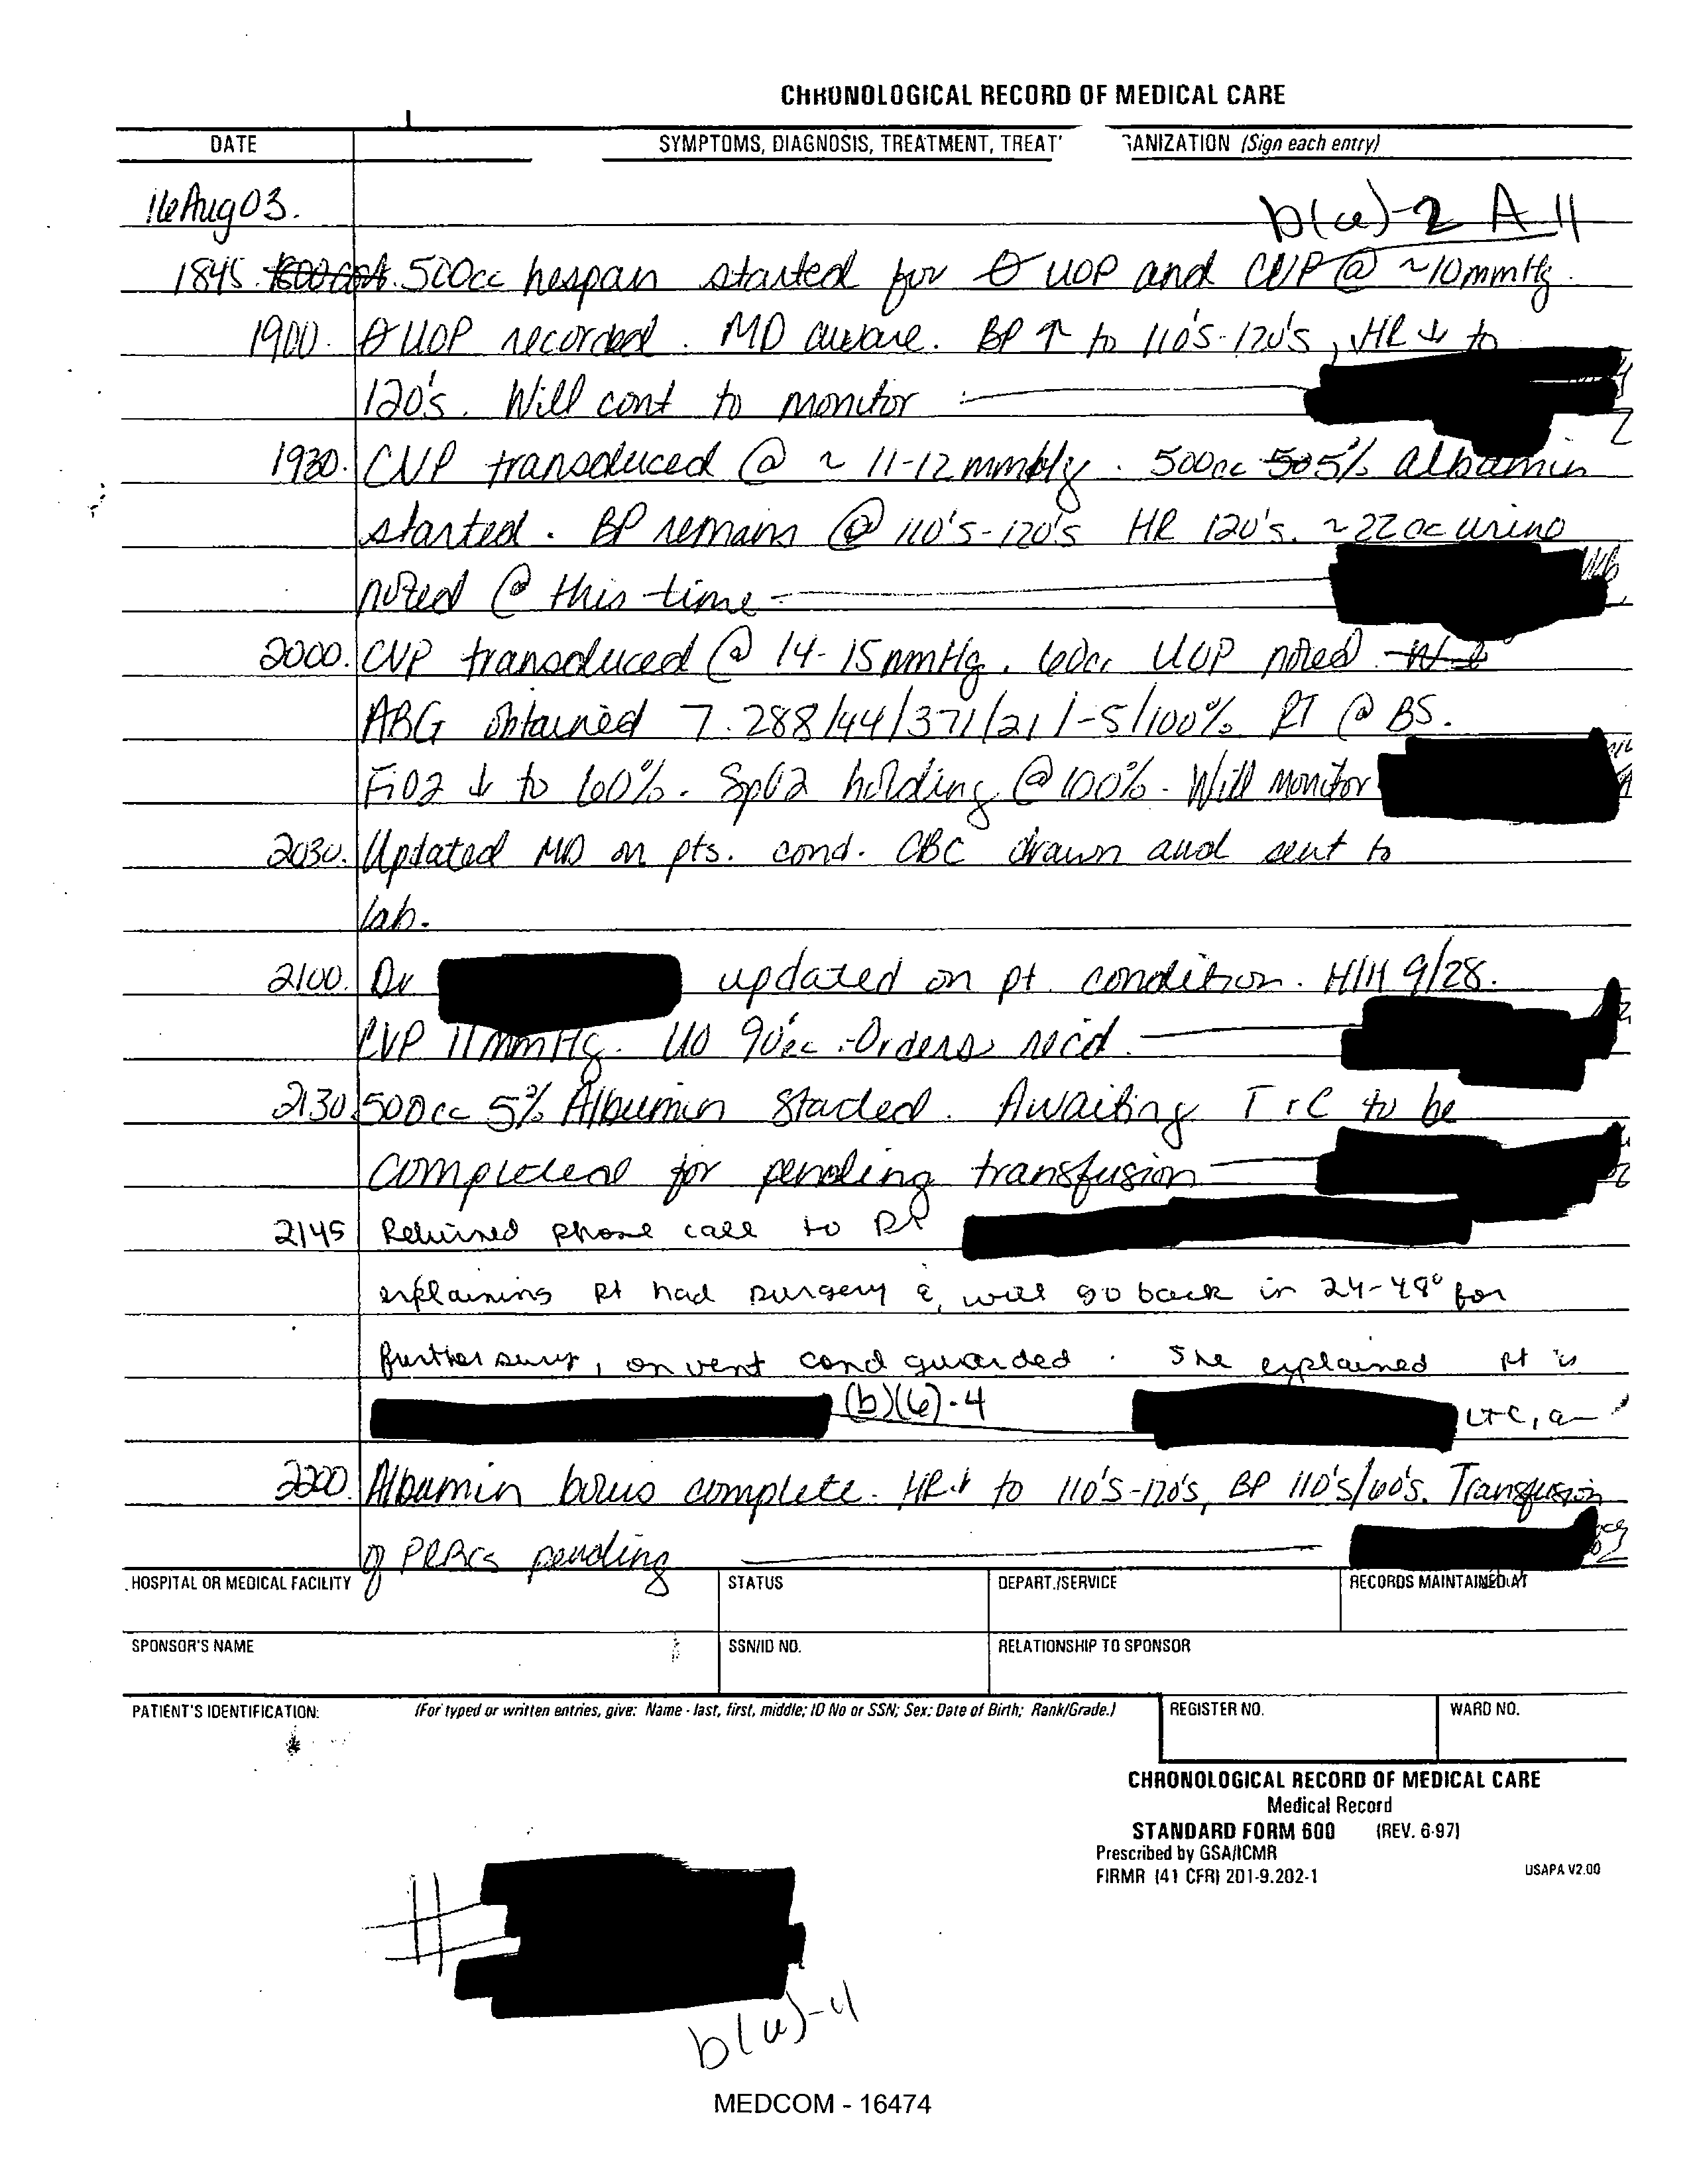 CHRONOLOGICAL RECORD OF MEDICAL CARE
DATE SYMPTOMS, DIAGNOSIS, TREATMENT, TREAT' GANIZATION (Sign each entry)
16 Aug 03.
b(6)-2 All
1845. 500cc hespan started for Ө UOP and CVP @ ~10mmHg.
1900. Ө UOP recorded. MD aware. BP ↑ to 110's-120's, HR ↓ to
120's. Will cont to monitor
1930. CVP transduced @ ~ 11-12 mmHg. 500cc 5% albumin
started. BP remains @ 110's-120's HR 120's. ~22cc urine
noted @ this time
2000. CVP transduced @ 14-15mmHg. 60cc UOP noted
ABG obtained 7.288/44/371/21/-5/100% RT @ BS.
FiO2 ↓ to 60%. SpO2 holding @ 100%. Will monitor
2030. Updated MD on pts. cond. CBC drawn and sent to
lab.
2100. Dr updated on pt. condition. H/H 9/28.
CVP 11mmHg. UO 90cc. Orders rec'd.
2130. 500cc 5% Albumin started. Awaiting T+C to be
completed for pending transfusion
2145 Returned phone call to
explaining pt had surgery & will go back in 24-48° for
further surg, on vent cond guarded. She explained pt is
(b)(6)-4 LTC, an
2200. Albumin bolus complete. HR ↓ to 110's-120's, BP 110's/60's. Transfusion
of PRBCs pending
HOSPITAL OR MEDICAL FACILITY STATUS DEPART./SERVICE RECORDS MAINTAINED AT
SPONSOR'S NAME SSN/ID NO. RELATIONSHIP TO SPONSOR
PATIENT'S IDENTIFICATION: (For typed or written entries, give: Name - last, first, middle; ID No or SSN; Sex; Date of Birth; Rank/Grade.) REGISTER NO. WARD NO.
CHRONOLOGICAL RECORD OF MEDICAL CARE
Medical Record
STANDARD FORM 600 (REV. 6-97)
Prescribed by GSA/ICMR
FIRMR (41 CFR) 201-9.202-1 USAPA V2.00
#
b(6)-4
MEDCOM - 16474